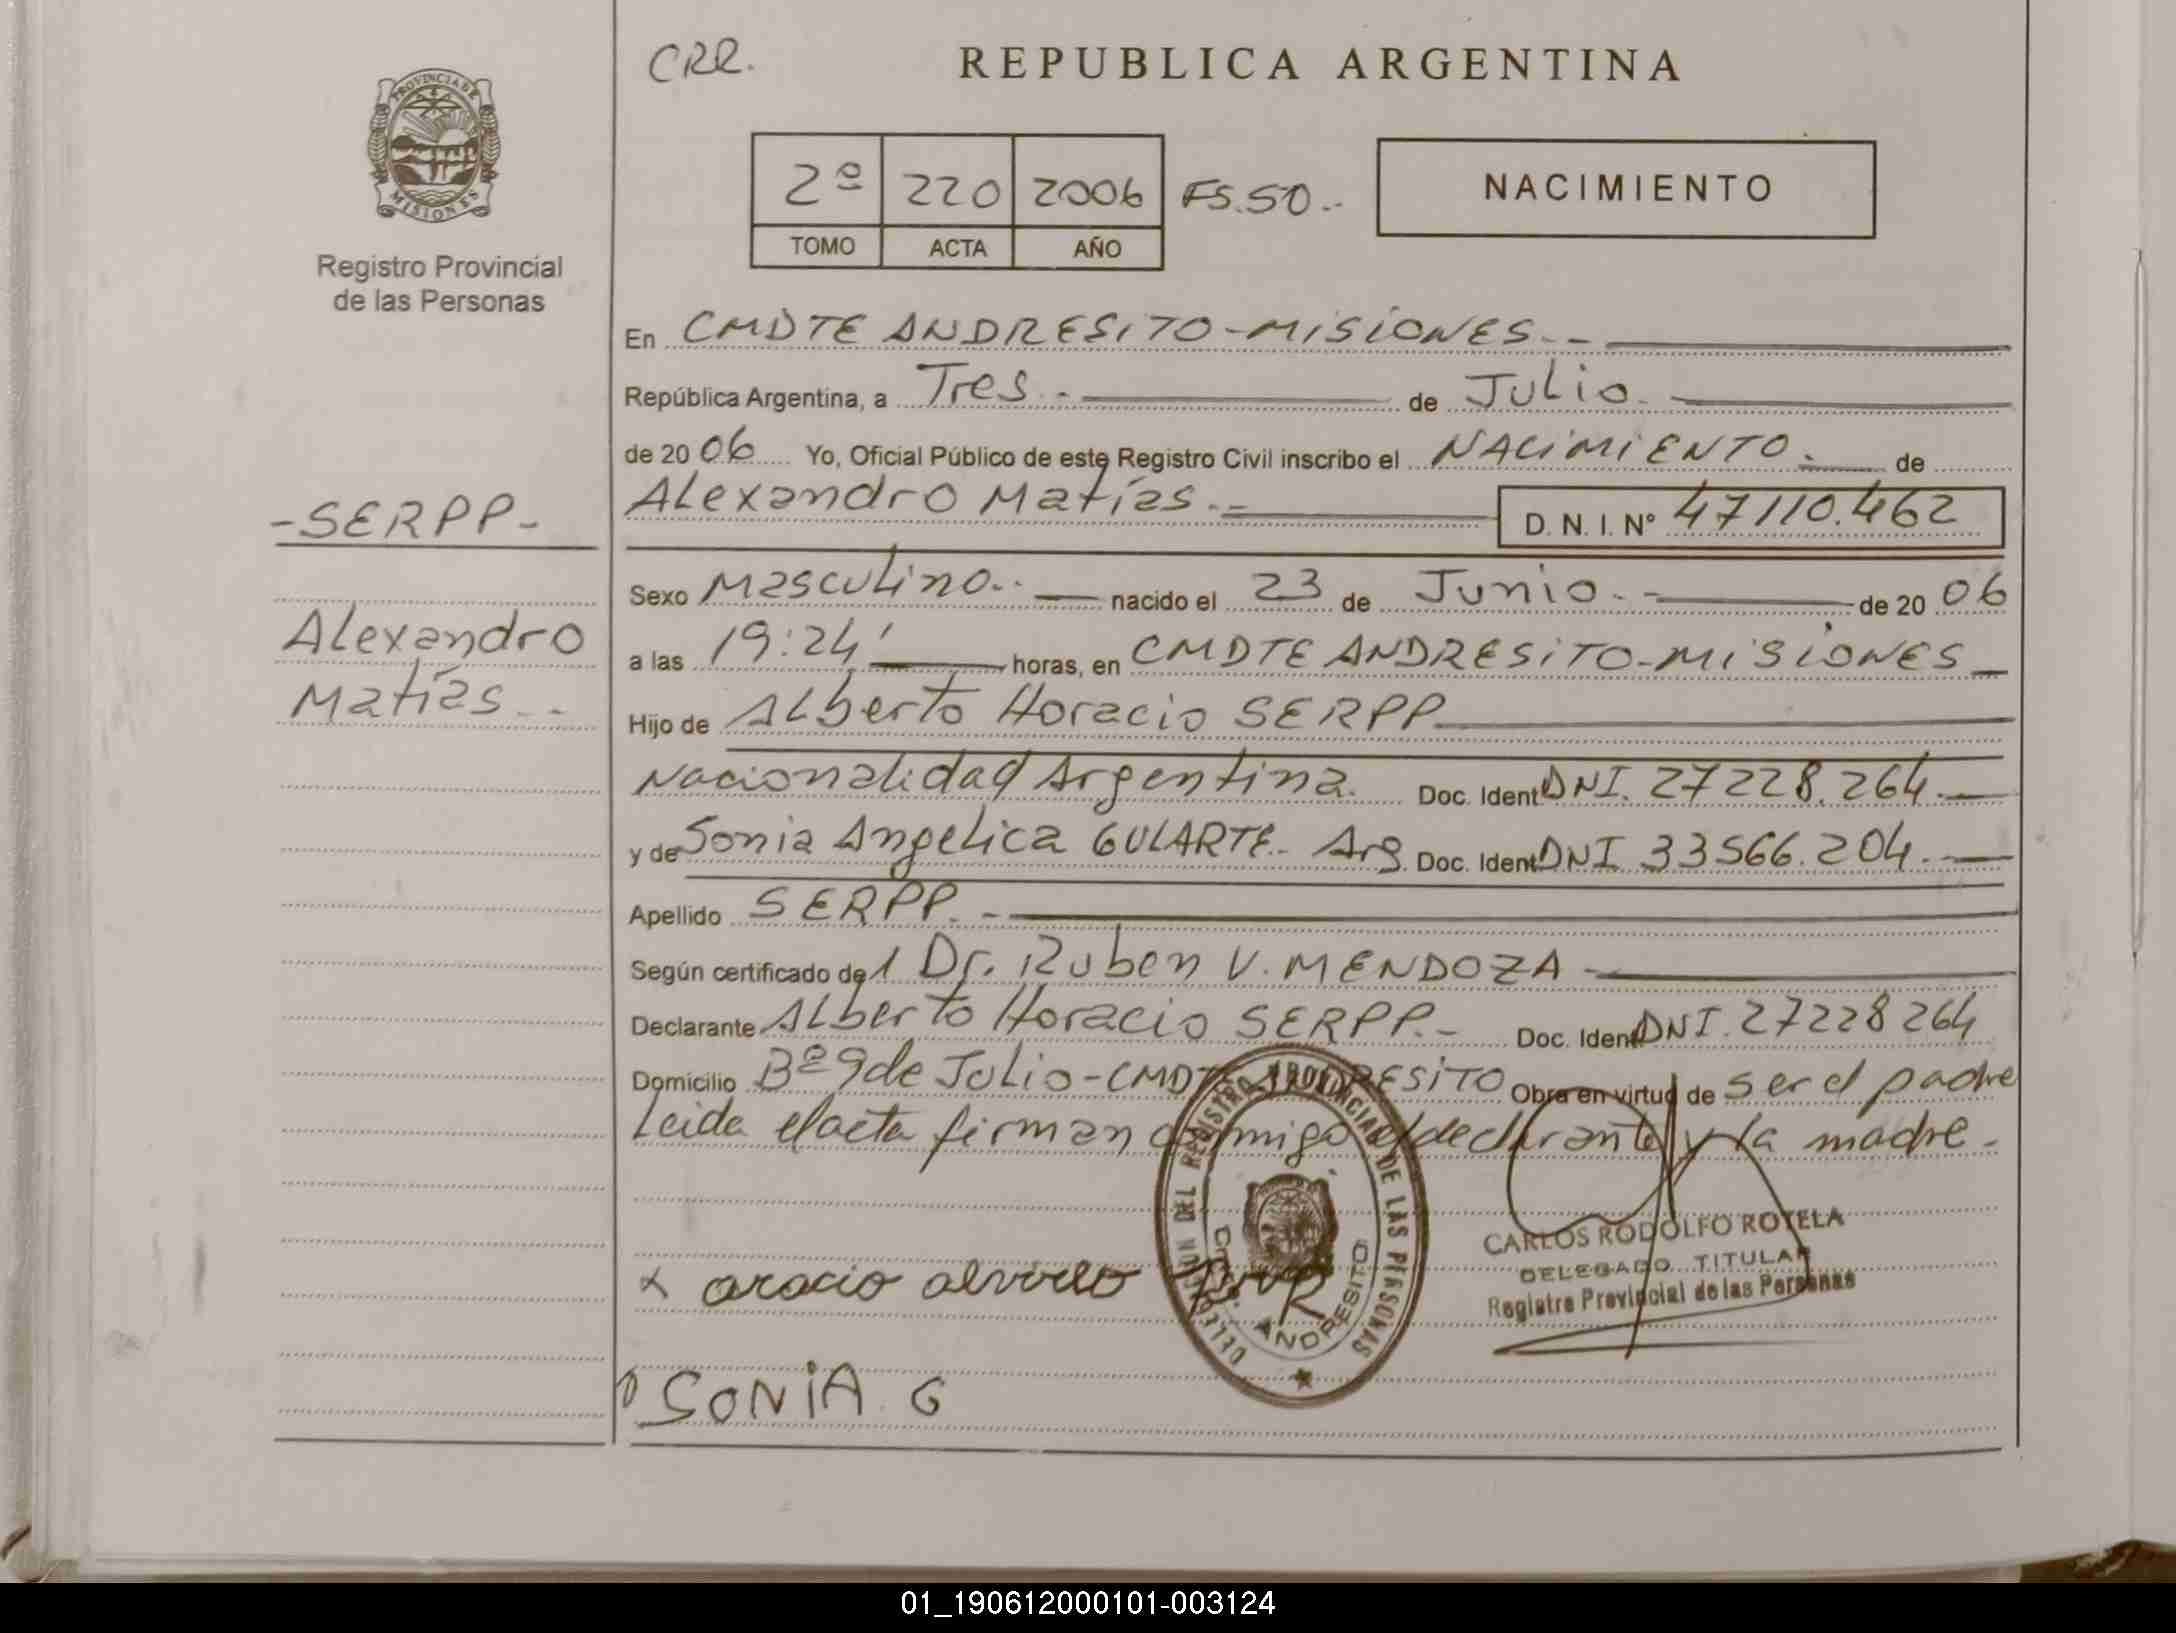 CRR.
REPUBLICA ARGENTINA
PROVINCIA DE
MISIONES
Registro Provincial
de las Personas
2º 220 2006 FS.50..
TOMO ACTA AÑO
NACIMIENTO
En CMDTE ANDRESITO-MISIONES.-
República Argentina, a Tres.- de Julio.
de 2006 Yo, Oficial Público de este Registro Civil inscribo el NACIMIENTO.- de
-SERPP-
Alexandro Matías.-
D. N. I. Nº 47110.462
Alexandro
Matías..
Sexo Masculino.. nacido el 23 de Junio.- de 2006
a las 19:24' horas, en CMDTE ANDRESITO-MISIONES
Hijo de Alberto Horacio SERPP
Nacionalidad Argentina. Doc. Ident DNI. 27228.264.
y de Sonia Angelica GULARTE.- Arg. Doc. Ident DNI 33566.204.
Apellido SERPP.-
Según certificado del Dr. Ruben V. MENDOZA
Declarante Alberto Horacio SERPP.- Doc. Ident DNI. 27228264
Domicilio Bº 9 de Julio-CMDTE ANDRESITO Obra en virtud de ser el padre
Leida el acta firman conmigo el declarante y la madre.
DELEGACION DEL REGISTRO PROVINCIAL DE LAS PERSONAS
ANDRESITO
CARLOS RODOLFO ROTELA
DELEGADO TITULAR
Registro Provincial de las Personas
x
SONIA G
01_190612000101-003124